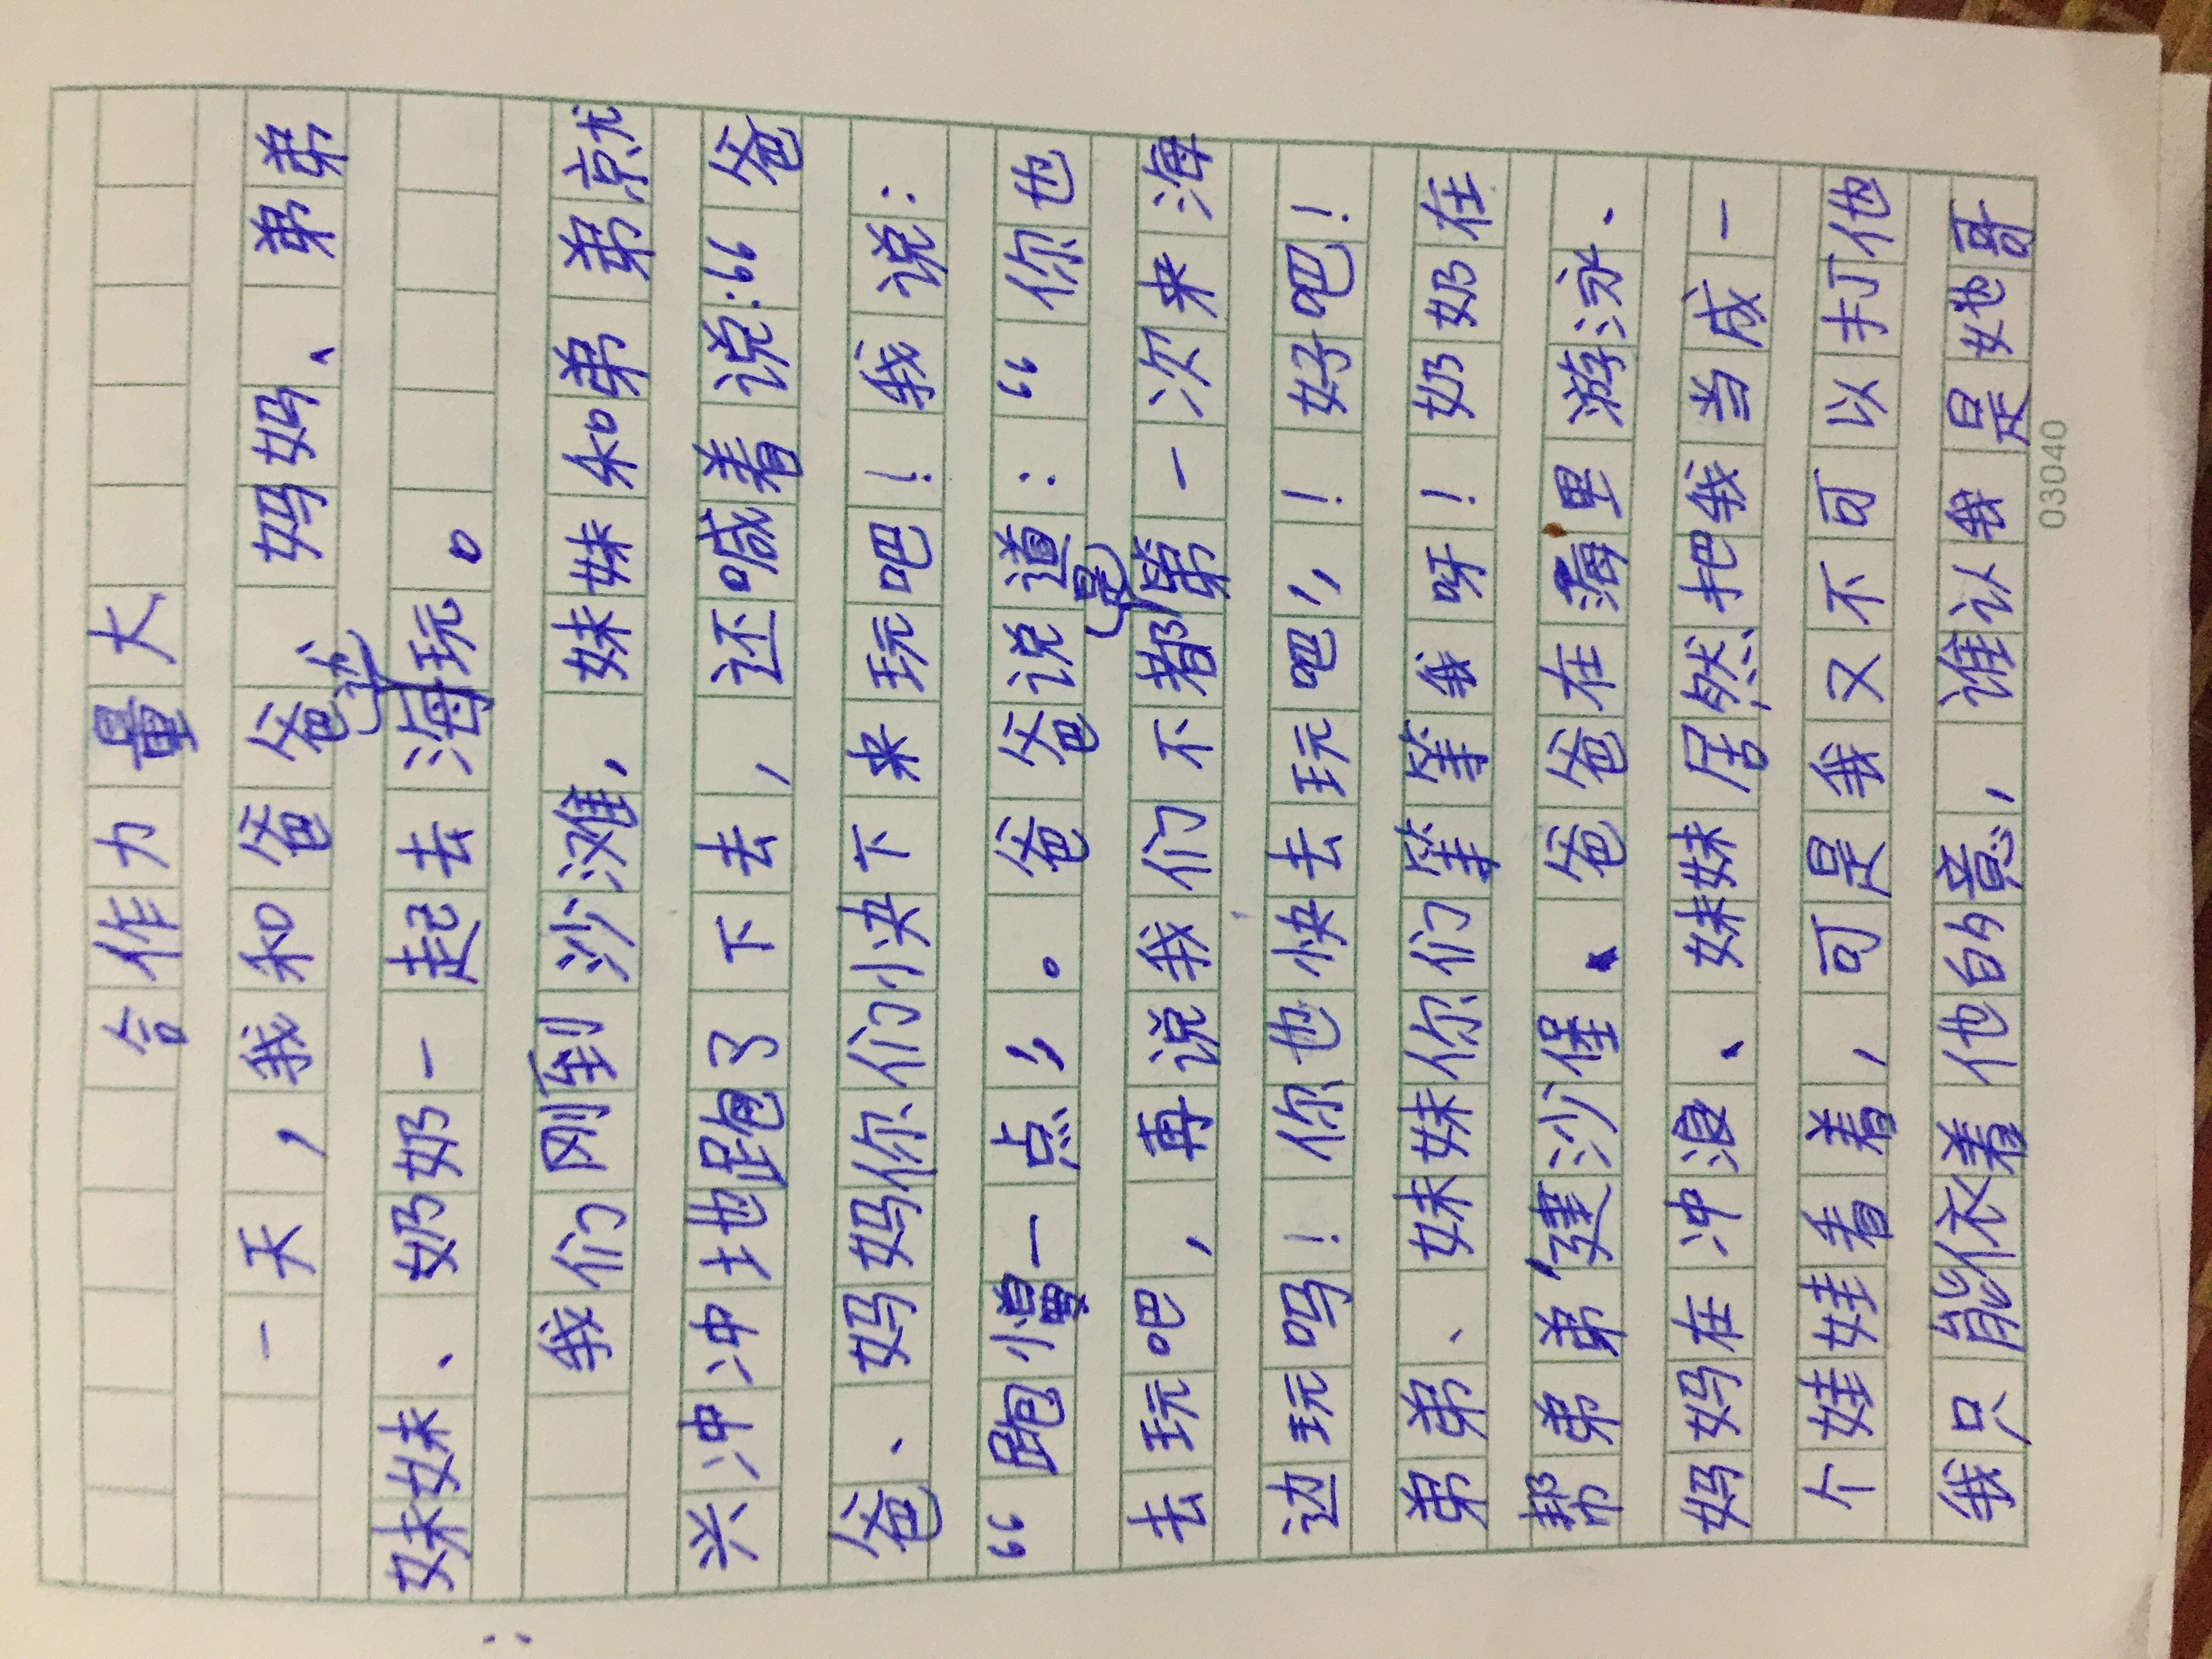 合作力量大
一天，我和爸爸、妈妈、弟弟
妹妹、奶奶一起去海边玩。
我们刚到沙滩，妹妹和弟弟就
兴冲冲地跑了下去，还喊着说：“爸
爸、妈妈你们快下来玩吧！我说：
“跑慢一点”。爸爸说道：“你也
去玩吧，再说我们不都是第一次来海
边玩吗！你也快去玩吧”！好吧！
弟弟、妹妹你们等等我呀！奶奶在
帮弟弟建沙堡、爸爸在海里游泳、
妈妈在冲浪、妹妹居然把我当成一
个娃娃看着，可是我又不可以打他
我只能依着他的意，谁让我是她哥
03040